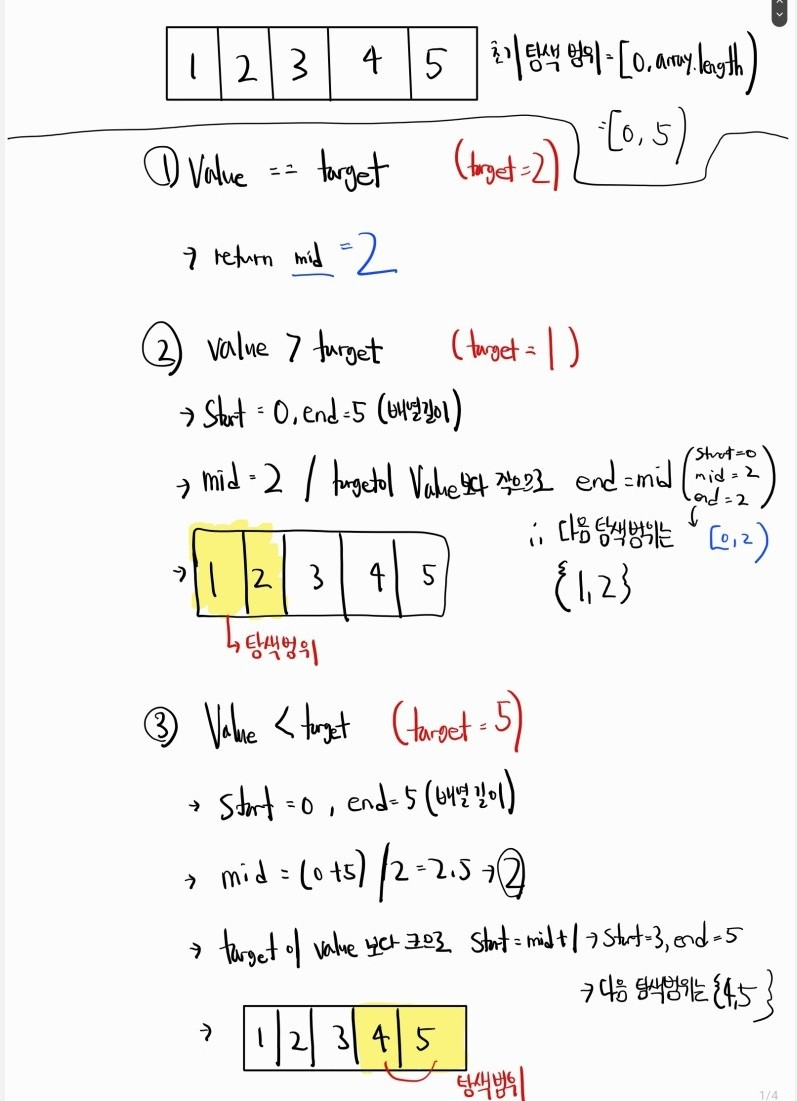 1 2 3 4 5 초기 탐색 범위 = [0, array.length)
=[0, 5)
① Value == target (target=2)
→ return mid = 2
② value > target (target = 1)
→ Start = 0, end=5 (배열길이)
→ mid = 2 / target이 Value보다 작으므로 end = mid (start=0
mid = 2
end = 2)
∴ 다음 탐색범위는 [0,2)
{1,2}
→ 1 2 3 4 5
↳ 탐색범위
③ Value < target (target = 5)
→ Start = 0, end= 5 (배열길이)
→ mid = (0+5)/2 = 2.5 → 2
→ target이 value 보다 크므로 Start = mid+1 → Start=3, end=5
→ 다음 탐색범위는 {4,5}
→ 1 2 3 4 5
탐색범위
1/4